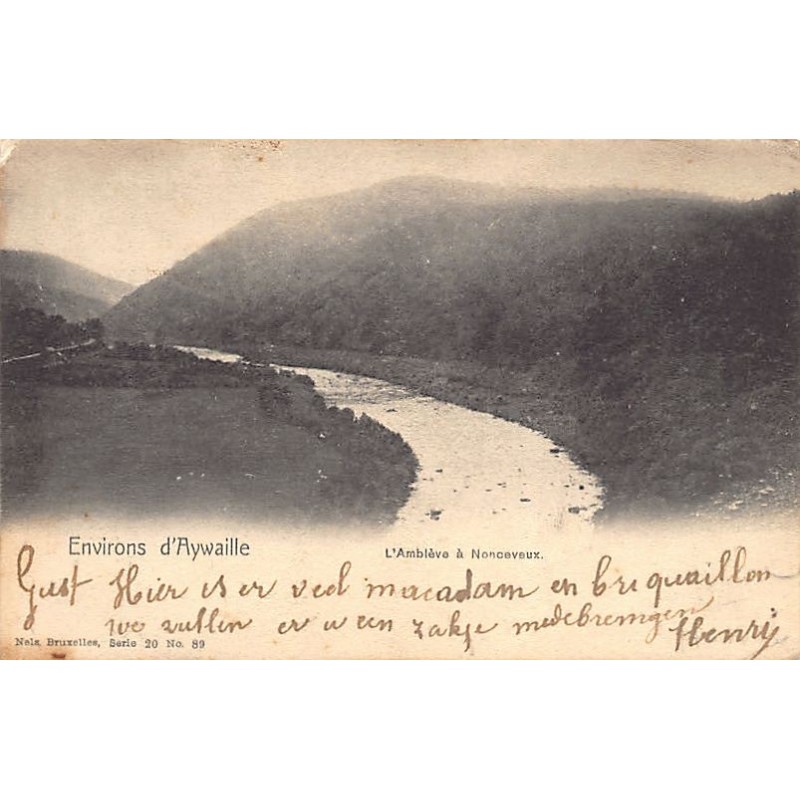 Environs d'Aywaille
L'Amblève à Nonceveux.
Gust Hier is er veel macadam en briquaillon
we zullen er u een zakje medebremgen Henry
Nels, Bruxelles, Serie 20 No. 89